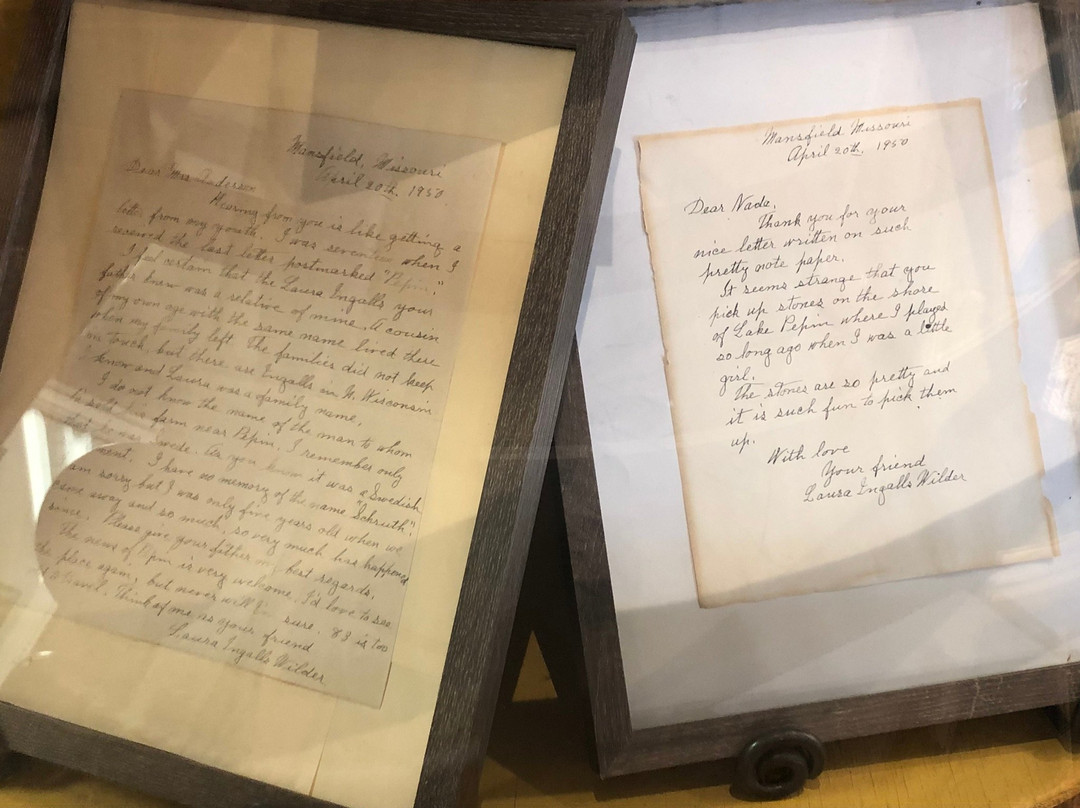 Mansfield, Missouri
April 20th, 1950
Dear Mrs Anderson
Hearing from you is like getting a
letter from my youth. I was seventeen when I
received the last letter postmarked "Pepin."
I feel certain that the Laura Ingalls your
father knew was a relative of mine. A cousin
of my own age with the same name lived there
when my family left. The families did not keep
in touch, but there are Ingalls in N. Wisconsin
I know and Laura was a family name.
I do not know the name of the man to whom
Pa sold his farm near Pepin. I remember only
that he was Swede. As you know it was a Swedish
ment. I have no memory of the name "Schruth".
am sorry but I was only five years old when we
came away and so much, so very much has happened
since. Please give your father my best regards.
The news of Pepin is very welcome. I'd love to see
the place again, but never will I'm sure. 83 is too
to travel. Think of me as your friend
Laura Ingalls Wilder
Mansfield Missouri
April 20th, 1950
Dear Nada,
Thank you for your
nice letter written on such
pretty note paper.
It seems strange that you
pick up stones on the shore
of Lake Pepin where I played
so long ago when I was a little
girl.
The stones are so pretty and
it is such fun to pick them
up.
With love
Your friend
Laura Ingalls Wilder